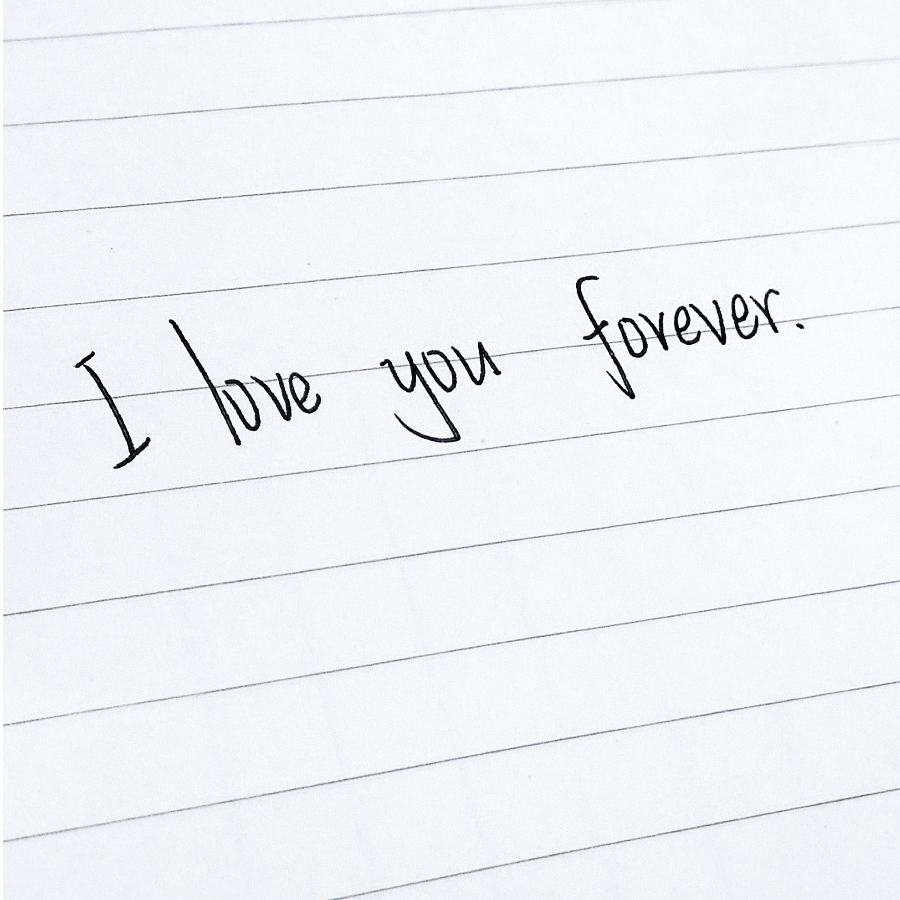 I love you forever.